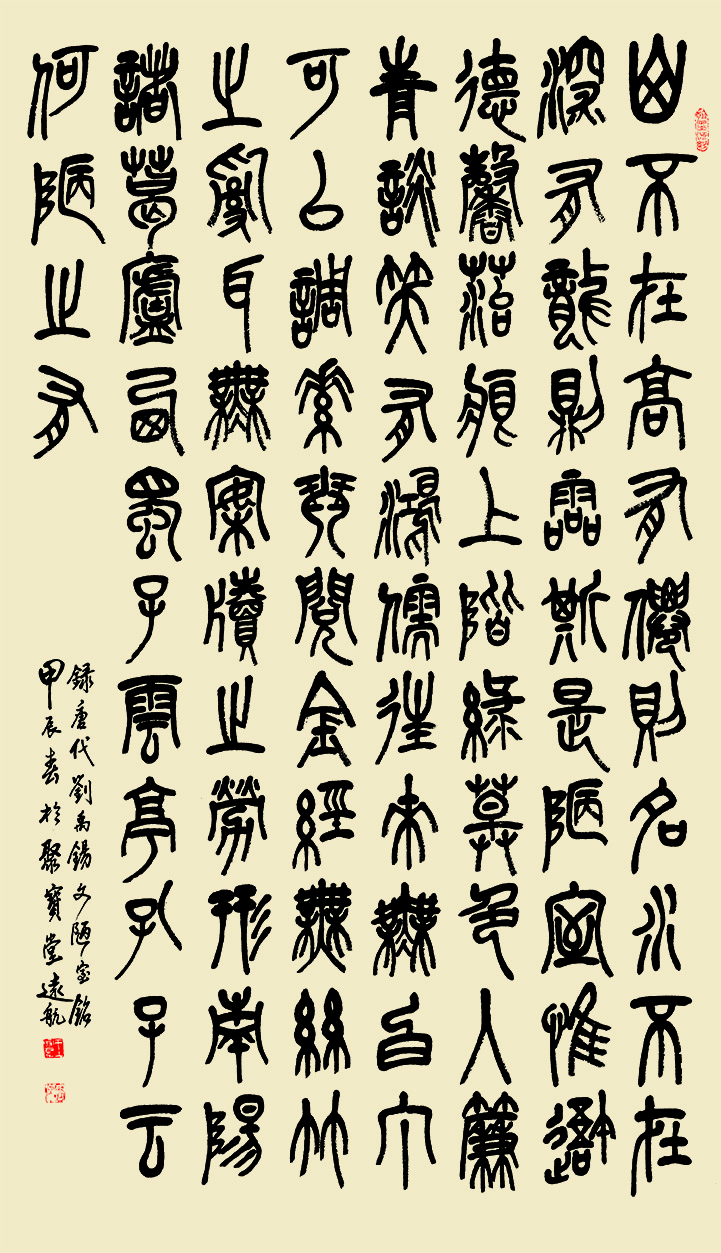 山不在高有僊則名水不在
深有龍則靈斯是陋室惟吾
德馨苔痕上階綠草色入簾
青談笑有鴻儒往來無白丁
可以調素琴閱金經無絲竹
之亂耳無案牘之勞形南陽
諸葛廬西蜀子雲亭孔子云
何陋之有
錄唐代劉禹錫文陋室銘
甲辰春於聚寶堂遠航